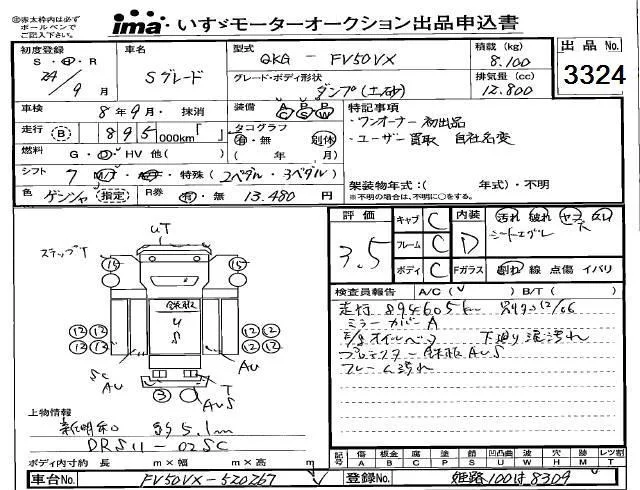 ※赤太枠内は必ずボールペンでご記入下さい。
ima・いすゞモーターオークション出品申込書
初度登録 S・H・R 24/9月
車名 Sグレード
型式 QKG - FV50VX
グレード・ボディ形状 ダンプ(土砂)
積載(kg) 8.100
排気量(cc) 12.800
出品No. 3324
車検 8年9月・抹消
装備 A/C P/S P/W
走行 (B) 895,000km「 」
タコグラフ 有・無 別体 ( 年 月)
燃料 G・D・HV 他( )
シフト 7 M/T・A/T・特殊(2ペダル・3ペダル)
色 ゲンシャ (指定)
R券 有・無 13.480円
特記事項
・ワンオーナー 初出品
・ユーザー買取 自社名変
架装物年式:( 年式)・不明
※不明の場合は、不明に○をする。
評価 3.5
キャブ C
フレーム C
ボディ C
内装 D 汚れ 破れ
Fガラス 割れ 線 点傷 イバリ
検査員報告 A/C(✓) B/T( )
走行 894605km
ミラーカバーA
フレーム汚れ
UT
ステップT
15 15
鉄板 U S
12 12 12 12
12 12 12 12
SC AU
AU
T
3
AUS
上物情報
新明和 5.1m
DRS11-02SC
ボディ内寸約 長 m×幅 m×高 m
記号 傷A 板金B 腐C 塗P 錆S 凹凸曲U 波W 穴H 跡M レツ割T
車台No. FV50VX-520267
登録No. 姫路100は8309